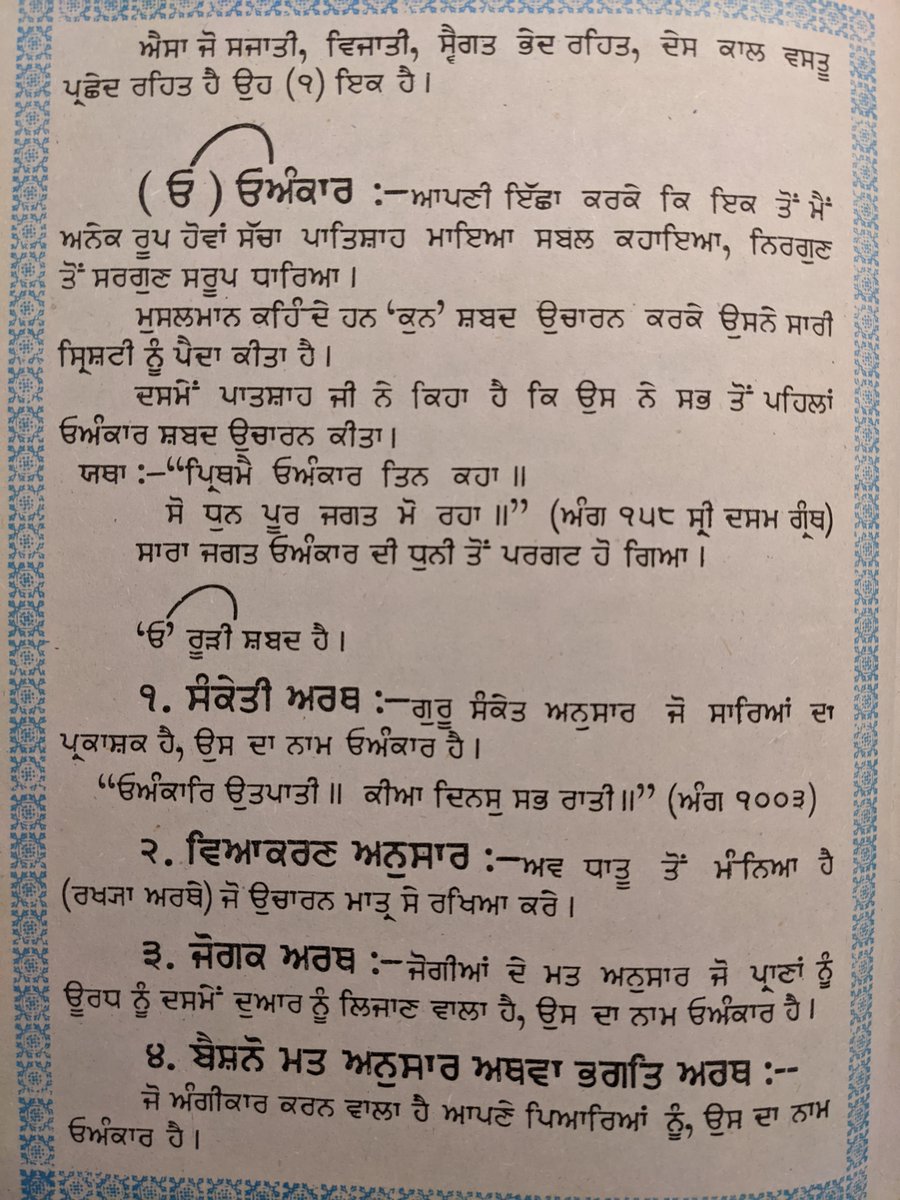 ਐਸਾ ਜੋ ਸਜਾਤੀ, ਵਿਜਾਤੀ, ਸ੍ਵੈਗਤ ਭੇਦ ਰਹਿਤ, ਦੇਸ ਕਾਲ ਵਸਤੂ
ਪ੍ਰਛੇਦ ਰਹਿਤ ਹੈ ਉਹ (੧) ਇਕ ਹੈ।
(ਓ) ਓਅੰਕਾਰ :—ਆਪਣੀ ਇੱਛਾ ਕਰਕੇ ਕਿ ਇਕ ਤੋਂ ਮੈਂ
ਅਨੇਕ ਰੂਪ ਹੋਵਾਂ ਸੱਚਾ ਪਾਤਿਸ਼ਾਹ ਮਾਇਆ ਸਬਲ ਕਹਾਇਆ, ਨਿਰਗੁਣ
ਤੋਂ ਸਰਗੁਣ ਸਰੂਪ ਧਾਰਿਆ।
ਮੁਸਲਮਾਨ ਕਹਿੰਦੇ ਹਨ ‘ਕੁਨ’ ਸ਼ਬਦ ਉਚਾਰਨ ਕਰਕੇ ਉਸਨੇ ਸਾਰੀ
ਸ੍ਰਿਸ਼ਟੀ ਨੂੰ ਪੈਦਾ ਕੀਤਾ ਹੈ।
ਦਸਮੇਂ ਪਾਤਸ਼ਾਹ ਜੀ ਨੇ ਕਿਹਾ ਹੈ ਕਿ ਉਸ ਨੇ ਸਭ ਤੋਂ ਪਹਿਲਾਂ
ਓਅੰਕਾਰ ਸ਼ਬਦ ਉਚਾਰਨ ਕੀਤਾ।
ਯਥਾ :—“ਪ੍ਰਿਥਮੈ ਓਅੰਕਾਰ ਤਿਨ ਕਹਾ॥
ਸੋ ਧੁਨ ਪੂਰ ਜਗਤ ਮੋ ਰਹਾ॥” (ਅੰਗ ੧੫੮ ਸ੍ਰੀ ਦਸਮ ਗ੍ਰੰਥ)
ਸਾਰਾ ਜਗਤ ਓਅੰਕਾਰ ਦੀ ਧੁਨੀ ਤੋਂ ਪਰਗਟ ਹੋ ਗਿਆ।
‘ਓ’ ਰੂੜੀ ਸ਼ਬਦ ਹੈ।
੧. ਸੰਕੇਤੀ ਅਰਥ :—ਗੁਰੂ ਸੰਕੇਤ ਅਨੁਸਾਰ ਜੋ ਸਾਰਿਆਂ ਦਾ
ਪ੍ਰਕਾਸ਼ਕ ਹੈ, ਉਸ ਦਾ ਨਾਮ ਓਅੰਕਾਰ ਹੈ।
“ਓਅੰਕਾਰਿ ਉਤਪਾਤੀ॥ ਕੀਆ ਦਿਨਸੁ ਸਭ ਰਾਤੀ॥” (ਅੰਗ ੧੦੦੩)
੨. ਵਿਆਕਰਣ ਅਨੁਸਾਰ :—ਅਵ ਧਾਤੂ ਤੋਂ ਮੰਨਿਆ ਹੈ
(ਰਖ੍ਯਾ ਅਰਥੇ) ਜੋ ਉਚਾਰਨ ਮਾਤ੍ਰ ਸੇ ਰਖਿਆ ਕਰੇ।
੩. ਜੋਗਕ ਅਰਥ :—ਜੋਗੀਆਂ ਦੇ ਮਤ ਅਨੁਸਾਰ ਜੋ ਪ੍ਰਾਣਾਂ ਨੂੰ
ਊਰਧ ਨੂੰ ਦਸਮੇਂ ਦੁਆਰ ਨੂੰ ਲਿਜਾਣ ਵਾਲਾ ਹੈ, ਉਸ ਦਾ ਨਾਮ ਓਅੰਕਾਰ ਹੈ।
੪. ਬੈਸ਼ਨੋ ਮਤ ਅਨੁਸਾਰ ਅਥਵਾ ਭਗਤਿ ਅਰਥ :--
ਜੋ ਅੰਗੀਕਾਰ ਕਰਨ ਵਾਲਾ ਹੈ ਆਪਣੇ ਪਿਆਰਿਆਂ ਨੂੰ, ਉਸ ਦਾ ਨਾਮ
ਓਅੰਕਾਰ ਹੈ।